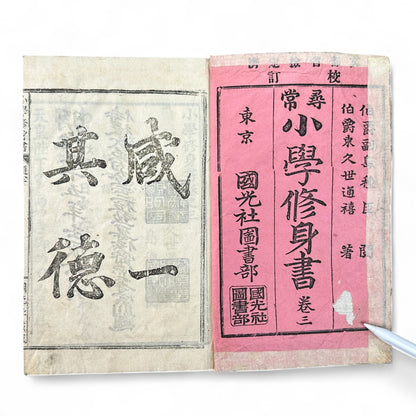 校訂
伯爵副島種臣 閲
伯爵東久世通禧 著
尋常
小學修身書 卷三
東京 國光社圖書部
國光社
圖書部
咸一
其德